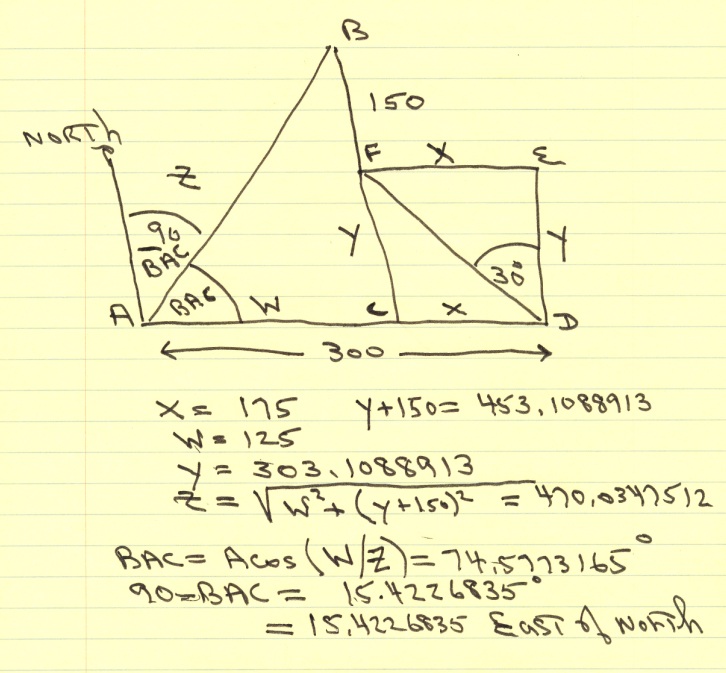 B
150
NORTH
F X E
Z
90
- BAC
Y
30°
Y
A BAC W C X D
300
X = 175 Y+150= 453.1088913
W = 125
Y = 303.1088913
Z = √W²+(Y+150)² = 470.0347512
BAC= Acos (W/Z)=74.5773165°
90-BAC = 15.4226835°
= 15.4226835 East of North